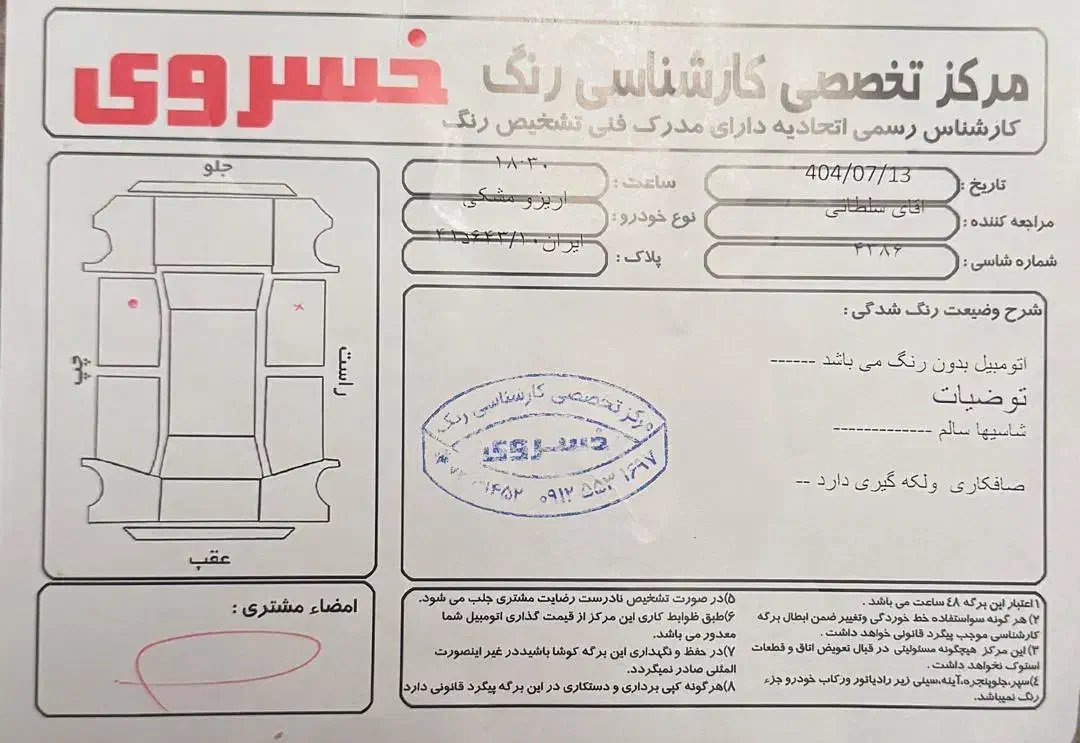 مرکز تخصصی کارشناسی رنگ خسروی
کارشناس رسمی اتحادیه دارای مدرک فنی تشخیص رنگ
تاریخ : 404/07/13
ساعت : ۱۸:۳۰
مراجعه کننده : اقای سلطانی
نوع خودرو : اریزو مشکی
شماره شاسی : ۴۳۸۶
پلاک : ایران۱۰/
جلو
چپ
راست
عقب
شرح وضیعت رنگ شدگی :
اتومبیل بدون رنگ می باشد ------
توضیات
شاسیها سالم -------------
صافکاری ولکه گیری دارد --
مرکز تخصصی کارشناسی رنگ
خسروی
۰۹۱۲ ۵۵۳ ۱۶۹۷
امضاء مشتری :
۱)اعتبار این برگه ٤٨ ساعت می باشد .
۲)هر گونه سواستفاده خط خوردگی وتغییر ضمن ابطال برگه
کارشناسی موجب پیگرد قانونی خواهد داشت .
۳)این مرکز هیچگونه مسئولیتی در قبال تعویض اتاق و قطعات
استوک نخواهد داشت .
٤)سپر،جلوپنجره،آینه،سینی زیر رادیاتور ورکاب خودرو جزء
رنگ نمیباشد.
۵)در صورت تشخیص نادرست رضایت مشتری جلب می شود.
۶)طبق ظوابط کاری این مرکز از قیمت گذاری اتومبیل شما
معدور می باشد.
۷)در حفظ و نگهداری این برگه کوشا باشیددر غیر اینصورت
المثنی صادر نمیگردد.
۸)هرگونه کپی برداری و دستکاری در این برگه پیگرد قانونی دارد